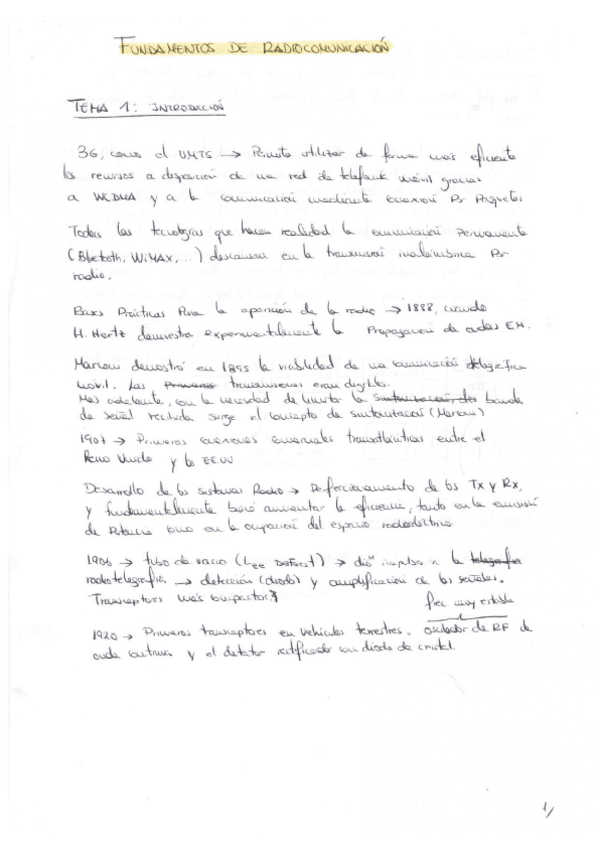 FUNDAMENTOS DE RADIOCOMUNICACIÓN
TEMA 1: INTRODUCCIÓN
3G, como el UMTS → Permite utilizar de forma más eficiente
los recursos a disposición de una red de telefonía móvil gracias
a WCDMA y a la comunicación mediante conexión por paquetes
Todas las tecnologías que hacen realidad la comunicación permanente
(Bluetooth, WiMAX, ...) descansan en la transmisión inalámbrica por
radio.
Bases Prácticas para la aparición de la radio → 1888, cuando
H. Hertz demuestra experimentalmente la propagación de ondas EM.
Marconi demostró en 1895 la viabilidad de una comunicación telegráfica
móvil. Las primeras transmisiones eran digitales.
Más adelante, con la necesidad de limitar la banda
de señal recibida surge el concepto de sintonización (Marconi)
1907 → Primeras conexiones comerciales transatlánticas entre el
Reino Unido y los EEUU
Desarrollo de los sistemas Radio → Perfeccionamiento de los Tx y Rx,
y fundamentalmente aumentar la eficiencia, tanto en la emisión
de Potencia como en la ocupación del espacio radioeléctrico
1906 → tubo de vacío (Lee DeForest) → dio impulso a la telegrafía
radiotelegrafía → detección (diodo) y amplificación de las señales.
Transceptores más compactos
frec muy estable
1920 → Primeros transceptores en vehículos terrestres. oscilador de RF de
onda continua y el detector rectificador con diodo de cristal
1/